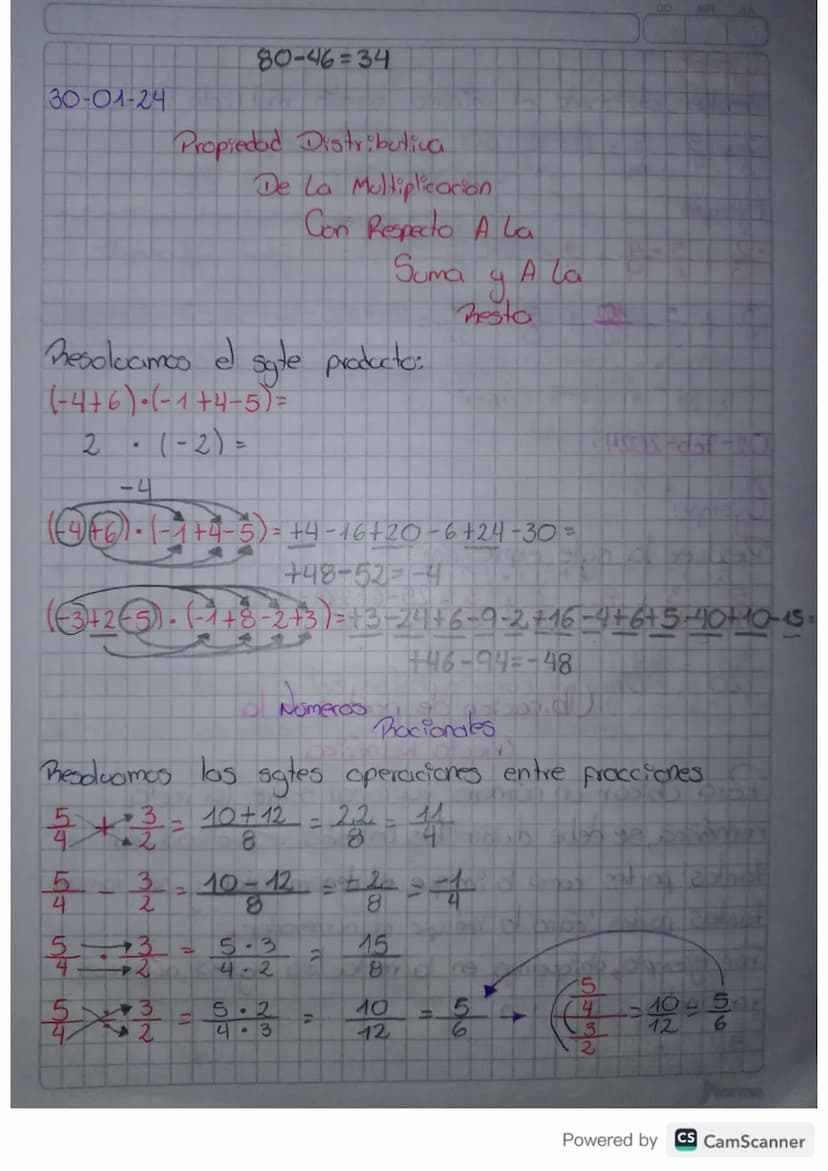 80-46=34
30-01-24
Propiedad Distributiva
De La Multiplicacion
Con Respecto A La
Suma y A La
Resta
Resolvamos el sgte producto:
(-4+6)·(-1+4-5)=
2 · (-2)=
-4
(-4+6)·(-1+4-5)= +4-16+20-6+24-30=
+48-52=-4
(-3+2-5)·(-1+8-2+3)=+3-24+6-9-2+16-4+6+5-40+10-15=
+46-94=-48
Números
Racionales
Resolvamos las sgtes operaciones entre fracciones
5/4 + 3/2 = 10+12/8 = 22/8 = 11/4
5/4 - 3/2 = 10-12/8 = -2/8 = -1/4
5/4 · 3/2 = 5·3/4·2 = 15/8
5/4 ÷ 3/2 = 5·2/4·3 = 10/12 = 5/6 → (5/4)/(3/2) = 10/12 = 5/6
Norma
Powered by CS CamScanner